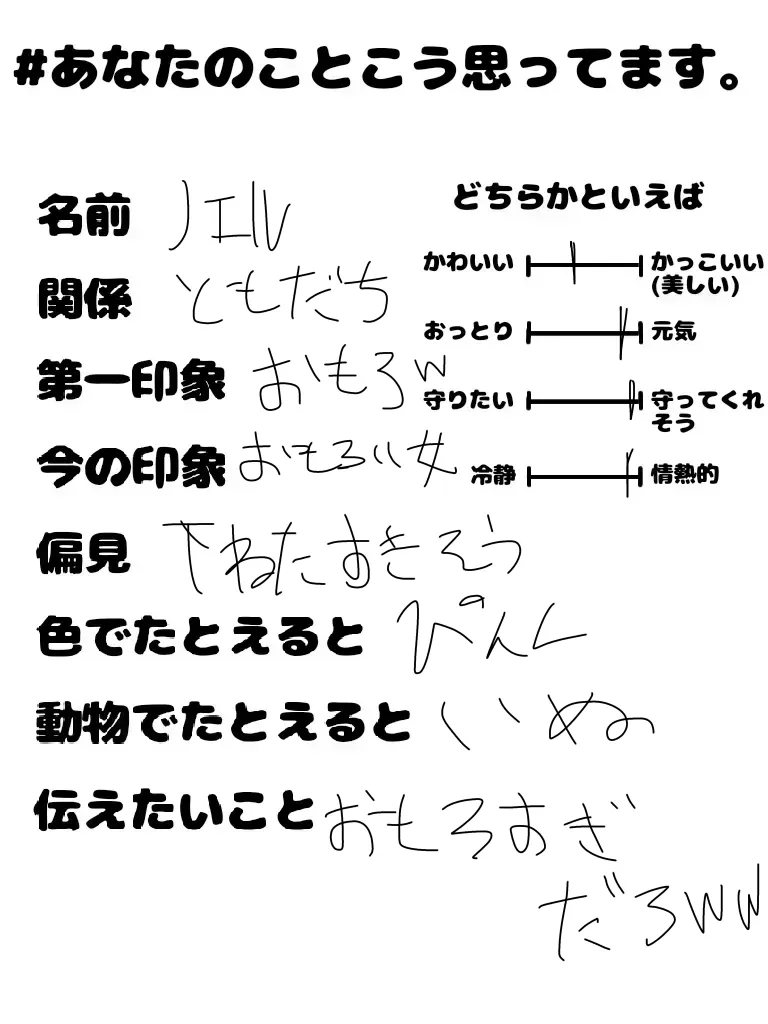 #あなたのことこう思ってます。
名前 ノエル
関係 ともだち
第一印象 おもろw
今の印象 おもろい女
偏見 下ねたすきそう
色でたとえると ぴんく
動物でたとえると いぬ
伝えたいこと おもろすぎ
だろww
どちらかといえば
かわいい かっこいい
(美しい)
おっとり 元気
守りたい 守ってくれ
そう
冷静 情熱的